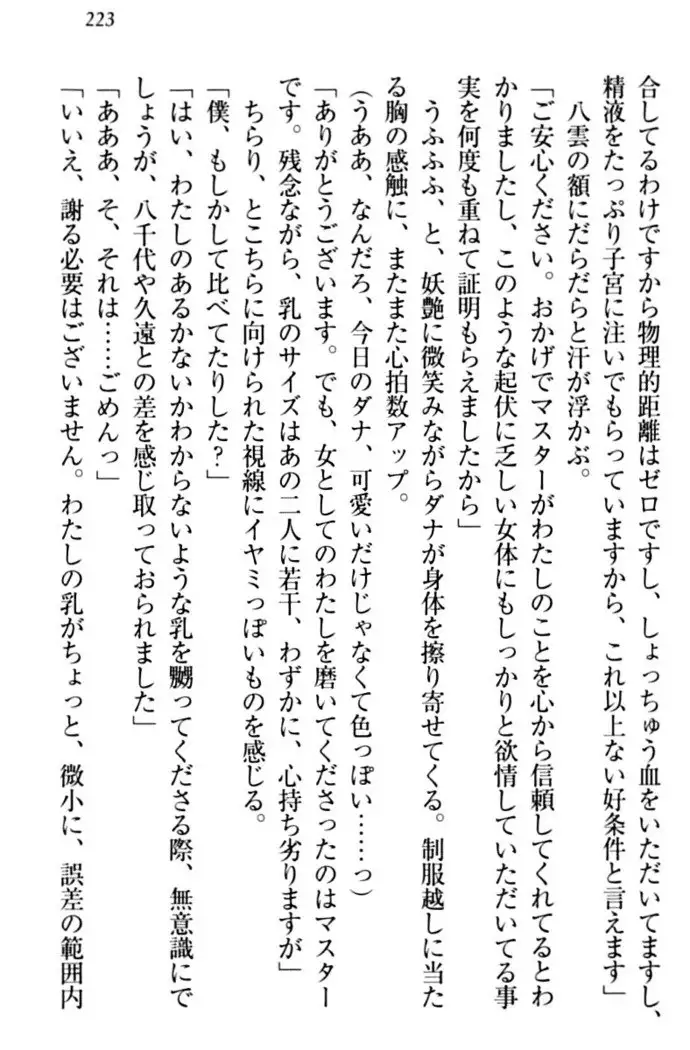 223
合してるわけですから物理的距離はゼロですし、しょっちゅう血をいただいてますし、
精液をたっぷり子宮に注いでもらっていますから、これ以上ない好条件と言えます」
八雲の額にだらだらと汗が浮かぶ。
「ご安心ください。おかげでマスターがわたしのことを心から信頼してくれてるとわ
かりましたし、このような起伏に乏しい女体にもしっかりと欲情していただいてる事
実を何度も重ねて証明もらえましたから」
うふふふ、と、妖艶に微笑みながらダナが身体を擦り寄せてくる。制服越しに当た
る胸の感触に、またまた心拍数アップ。
（うああ、なんだろ、今日のダナ、可愛いだけじゃなくて色っぽい……っ）
「ありがとうございます。でも、女としてのわたしを磨いてくださったのはマスター
です。残念ながら、乳のサイズはあの二人に若干、わずかに、心持ち劣りますが」
ちらり、とこちらに向けられた視線にイヤミっぽいものを感じる。
「僕、もしかして比べてたりした？」
「はい、わたしのあるかないかわからないような乳を嬲ってくださる際、無意識にで
しょうが、八千代や久遠との差を感じ取っておられました」
「あああ、そ、それは……ごめんっ」
「いいえ、謝る必要はございません。わたしの乳がちょっと、微小に、誤差の範囲内